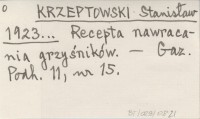 o
KRZEPTOWSKI Stanisław
1923... Recepta nawraca-
nia grzyśników. — Gaz.
Podh. 11, nr 15.